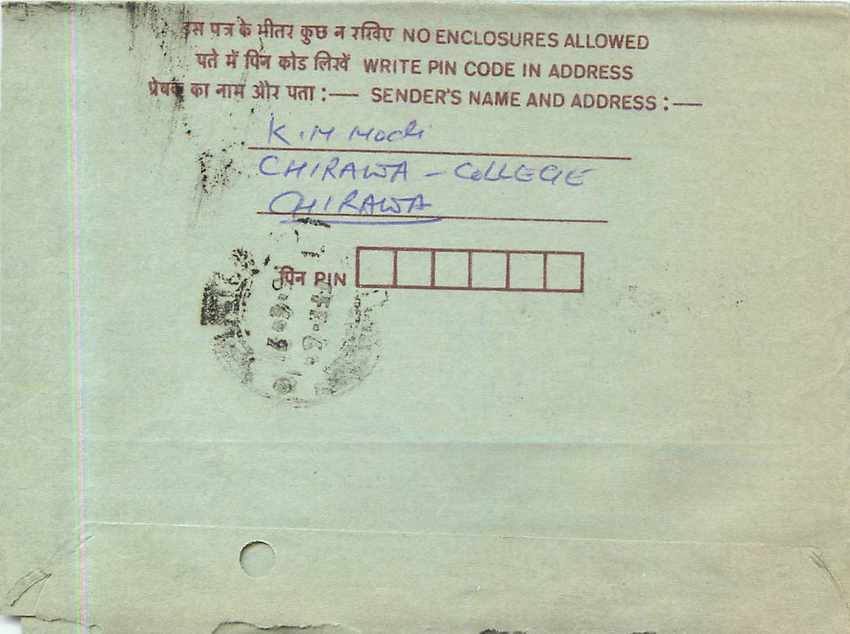 इस पत्र के भीतर कुछ न रखिए NO ENCLOSURES ALLOWED
पते में पिन कोड लिखें WRITE PIN CODE IN ADDRESS
प्रेषक का नाम और पता :— SENDER'S NAME AND ADDRESS :—
K.M Modi
CHIRAWA - COLLEGE
CHIRAWA
पिन PIN